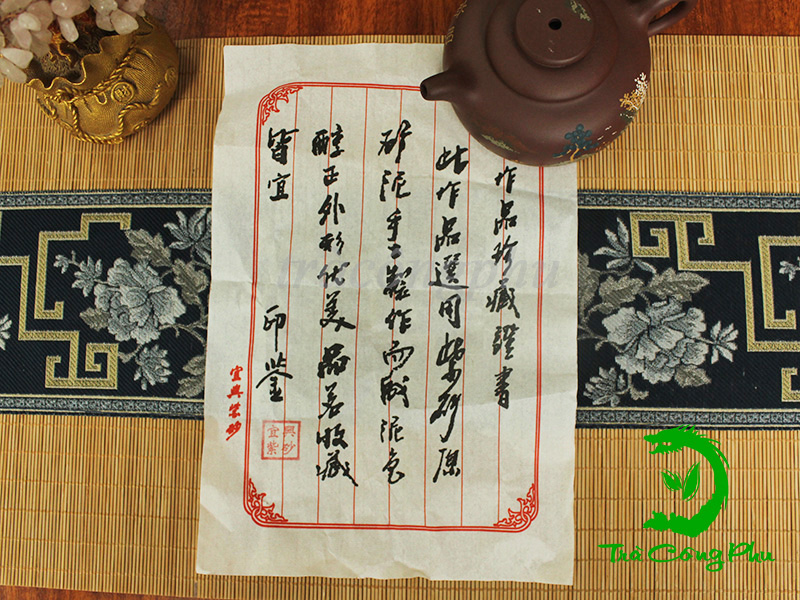 作品珍藏證書
此作品選用紫砂原
矿泥手工製作而成泥色
醇正外形优美品茗收藏
皆宜
印鉴
宜興紫砂
興砂
宜紫
tracongphu
Trà Công Phu